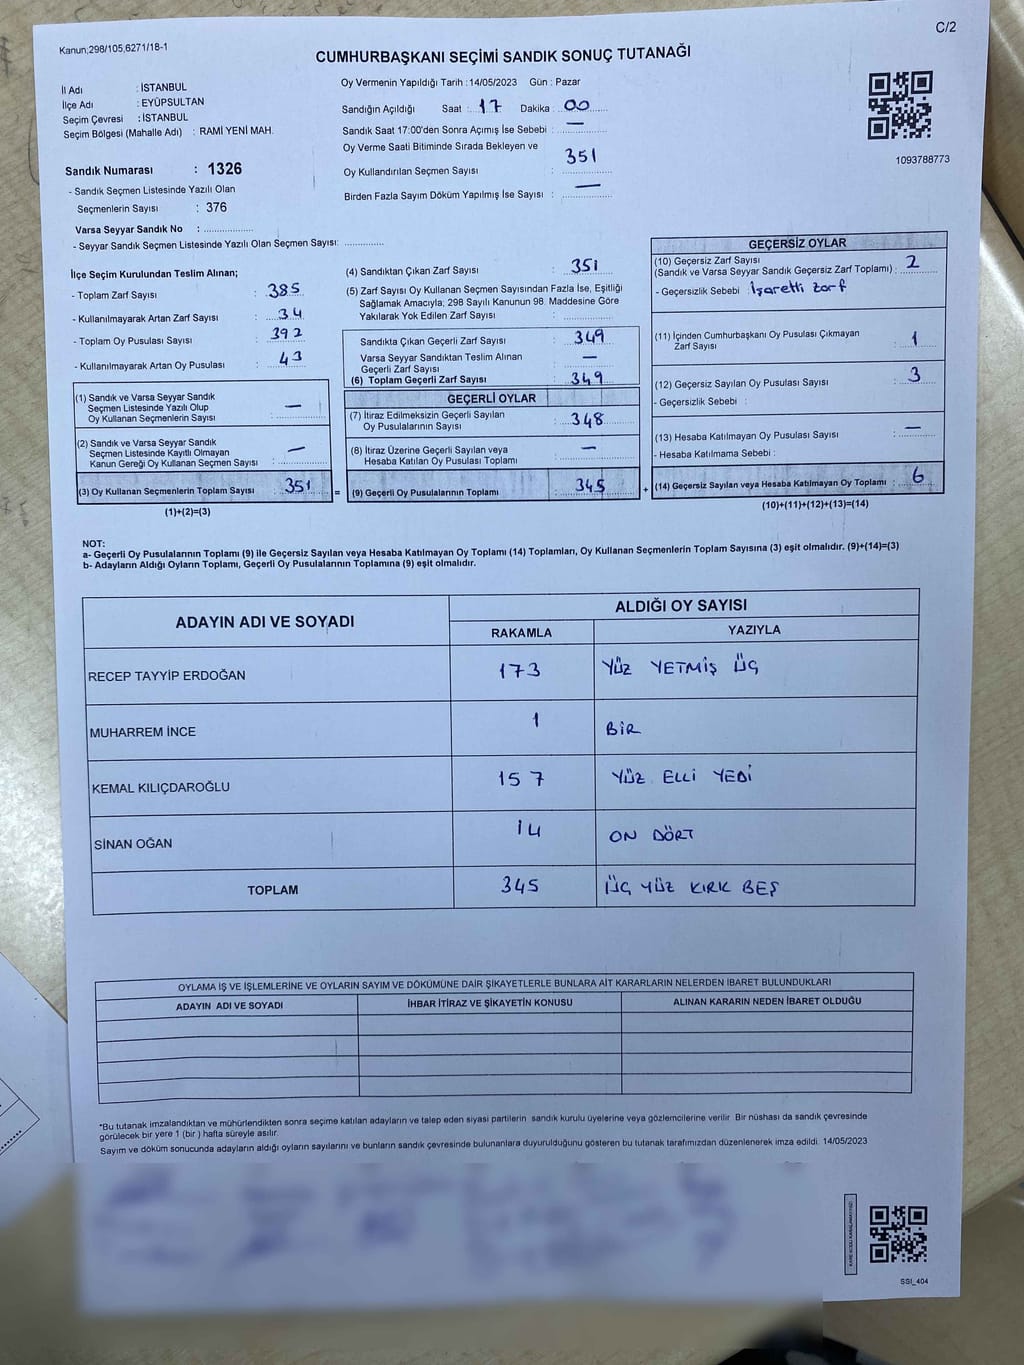 C/2
Kanun;298/105,6271/18-1
CUMHURBAŞKANI SEÇİMİ SANDIK SONUÇ TUTANAĞI
İl Adı : İSTANBUL
İlçe Adı : EYÜPSULTAN
Seçim Çevresi : İSTANBUL
Seçim Bölgesi (Mahalle Adı) : RAMİ YENİ MAH.
Sandık Numarası : 1326
- Sandık Seçmen Listesinde Yazılı Olan
Seçmenlerin Sayısı : 376
Varsa Seyyar Sandık No :
- Seyyar Sandık Seçmen Listesinde Yazılı Olan Seçmen Sayısı:
Oy Vermenin Yapıldığı Tarih : 14/05/2023 Gün : Pazar
Sandığın Açıldığı Saat : 17 Dakika : 00
Sandık Saat 17:00'den Sonra Açımış İse Sebebi : —
Oy Verme Saati Bitiminde Sırada Bekleyen ve
Oy Kullandırılan Seçmen Sayısı : 351
Birden Fazla Sayım Döküm Yapılmış İse Sayısı : —
1093788773
İlçe Seçim Kurulundan Teslim Alınan;
- Toplam Zarf Sayısı : 385
- Kullanılmayarak Artan Zarf Sayısı : 34
- Toplam Oy Pusulası Sayısı : 392
- Kullanılmayarak Artan Oy Pusulası : 43
(1) Sandık ve Varsa Seyyar Sandık
Seçmen Listesinde Yazılı Olup
Oy Kullanan Seçmenlerin Sayısı : —
(2) Sandık ve Varsa Seyyar Sandık
Seçmen Listesinde Kayıtlı Olmayan
Kanun Gereği Oy Kullanan Seçmen Sayısı : —
(3) Oy Kullanan Seçmenlerin Toplam Sayısı : 351
(1)+(2)=(3)
(4) Sandıktan Çıkan Zarf Sayısı : 351
(5) Zarf Sayısı Oy Kullanan Seçmen Sayısından Fazla İse, Eşitliği
Sağlamak Amacıyla; 298 Sayılı Kanunun 98. Maddesine Göre
Yakılarak Yok Edilen Zarf Sayısı :
Sandıkta Çıkan Geçerli Zarf Sayısı : 349
Varsa Seyyar Sandıktan Teslim Alınan
Geçerli Zarf Sayısı : —
(6) Toplam Geçerli Zarf Sayısı : 349
GEÇERLİ OYLAR
(7) İtiraz Edilmeksizin Geçerli Sayılan
Oy Pusulalarının Sayısı : 348
(8) İtiraz Üzerine Geçerli Sayılan veya
Hesaba Katılan Oy Pusulası Toplamı : —
= (9) Geçerli Oy Pusulalarının Toplamı : 345
GEÇERSİZ OYLAR
(10) Geçersiz Zarf Sayısı
(Sandık ve Varsa Seyyar Sandık Geçersiz Zarf Toplamı) : 2
- Geçersizlik Sebebi : İşaretli zarf
(11) İçinden Cumhurbaşkanı Oy Pusulası Çıkmayan
Zarf Sayısı : 1
(12) Geçersiz Sayılan Oy Pusulası Sayısı : 3
- Geçersizlik Sebebi :
(13) Hesaba Katılmayan Oy Pusulası Sayısı : —
- Hesaba Katılmama Sebebi :
+ (14) Geçersiz Sayılan veya Hesaba Katılmayan Oy Toplamı : 6
(10)+(11)+(12)+(13)=(14)
NOT:
a- Geçerli Oy Pusulalarının Toplamı (9) ile Geçersiz Sayılan veya Hesaba Katılmayan Oy Toplamı (14) Toplamları, Oy Kullanan Seçmenlerin Toplam Sayısına (3) eşit olmalıdır. (9)+(14)=(3)
b- Adayların Aldığı Oyların Toplamı, Geçerli Oy Pusulalarının Toplamına (9) eşit olmalıdır.
ADAYIN ADI VE SOYADI
ALDIĞI OY SAYISI
RAKAMLA YAZIYLA
RECEP TAYYİP ERDOĞAN 173 YÜZ YETMİŞ ÜÇ
MUHARREM İNCE 1 BİR
KEMAL KILIÇDAROĞLU 157 YÜZ ELLİ YEDİ
SİNAN OĞAN 14 ON DÖRT
TOPLAM 345 ÜÇ YÜZ KIRK BEŞ
OYLAMA İŞ VE İŞLEMLERİNE VE OYLARIN SAYIM VE DÖKÜMÜNE DAİR ŞİKAYETLERLE BUNLARA AİT KARARLARIN NELERDEN İBARET BULUNDUKLARI
ADAYIN ADI VE SOYADI İHBAR İTİRAZ VE ŞİKAYETİN KONUSU ALINAN KARARIN NEDEN İBARET OLDUĞU
*Bu tutanak imzalandıktan ve mühürlendikten sonra seçime katılan adayların ve talep eden siyasi partilerin sandık kurulu üyelerine veya gözlemcilerine verilir. Bir nüshası da sandık çevresinde
görülecek bir yere 1 (bir ) hafta süreyle asılır.
Sayım ve döküm sonucunda adayların aldığı oyların sayılarını ve bunların sandık çevresinde bulunanlara duyurulduğunu gösteren bu tutanak tarafımızdan düzenlenerek imza edildi. 14/05/2023
SSI_404